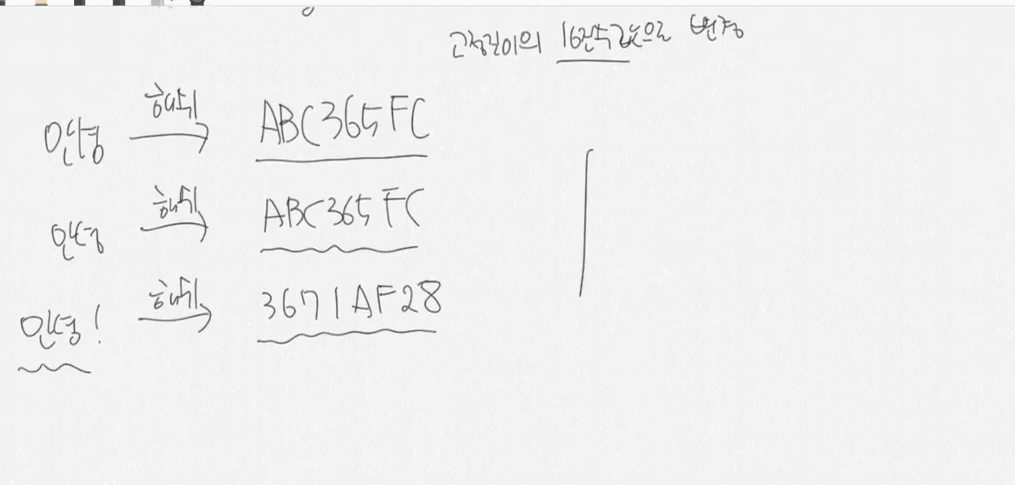 고정길이의 16진수 값으로 변경
안녕 해쉬 ABC365FC
안녕 해쉬 ABC365FC
안녕! 해쉬 3671AF28